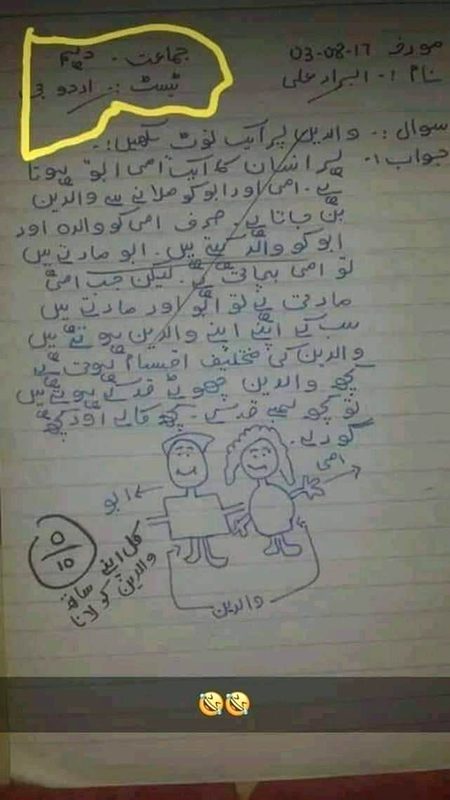 مورخہ 03-08-17 جماعت - دہم
نام :- ابرار علی ٹیسٹ :- اردو بی
سوال :- والدین پر ایک نوٹ لکھیں :-
جواب :- ہر انسان کا ایک امی ابو ہوتا
ہے۔ امی اور ابو کو ملانے سے والدین
بن جاتا ہے۔ صرف امی کو والدہ اور
ابو کو والد کہتے ہیں۔ ابو مارتے ہیں
تو امی بچاتی ہے۔ لیکن جب امی
مارتی ہے تو ابو اور مارتے ہیں
سب کے اپنے اپنے والدین ہوتے ہیں
والدین کی مختلف اقسام ہوتی ہے
کچھ والدین چھوٹے قد کے ہوتے ہیں
تو کچھ لمبے قد کے۔ کچھ کالے اور کچھ
گورے۔
امی
ابو
0/10
کل اپنے ساتھ
والدین کو لانا
والدین
🤣🤣